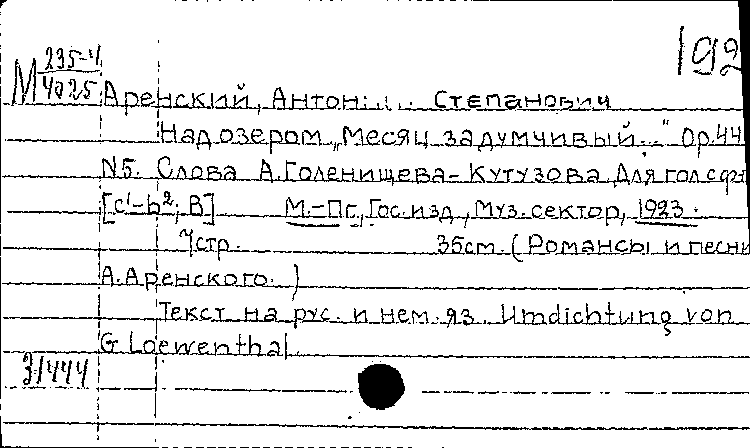 192
М 235-4/4025
Аренский, Антон Степанович
Над озером „Месяц задумчивый..." Ор.44
N5. Слова А.Голенищева-Кутузова. Для гол с фп
[c¹-b²; B] М.-Пг., Гос. изд., Муз. сектор, 1923.
7стр. 35см. (Романсы и песни
А.Аренского.)
Текст на рус. и нем. яз. Umdichtung von
G.Loewenthal.
31444